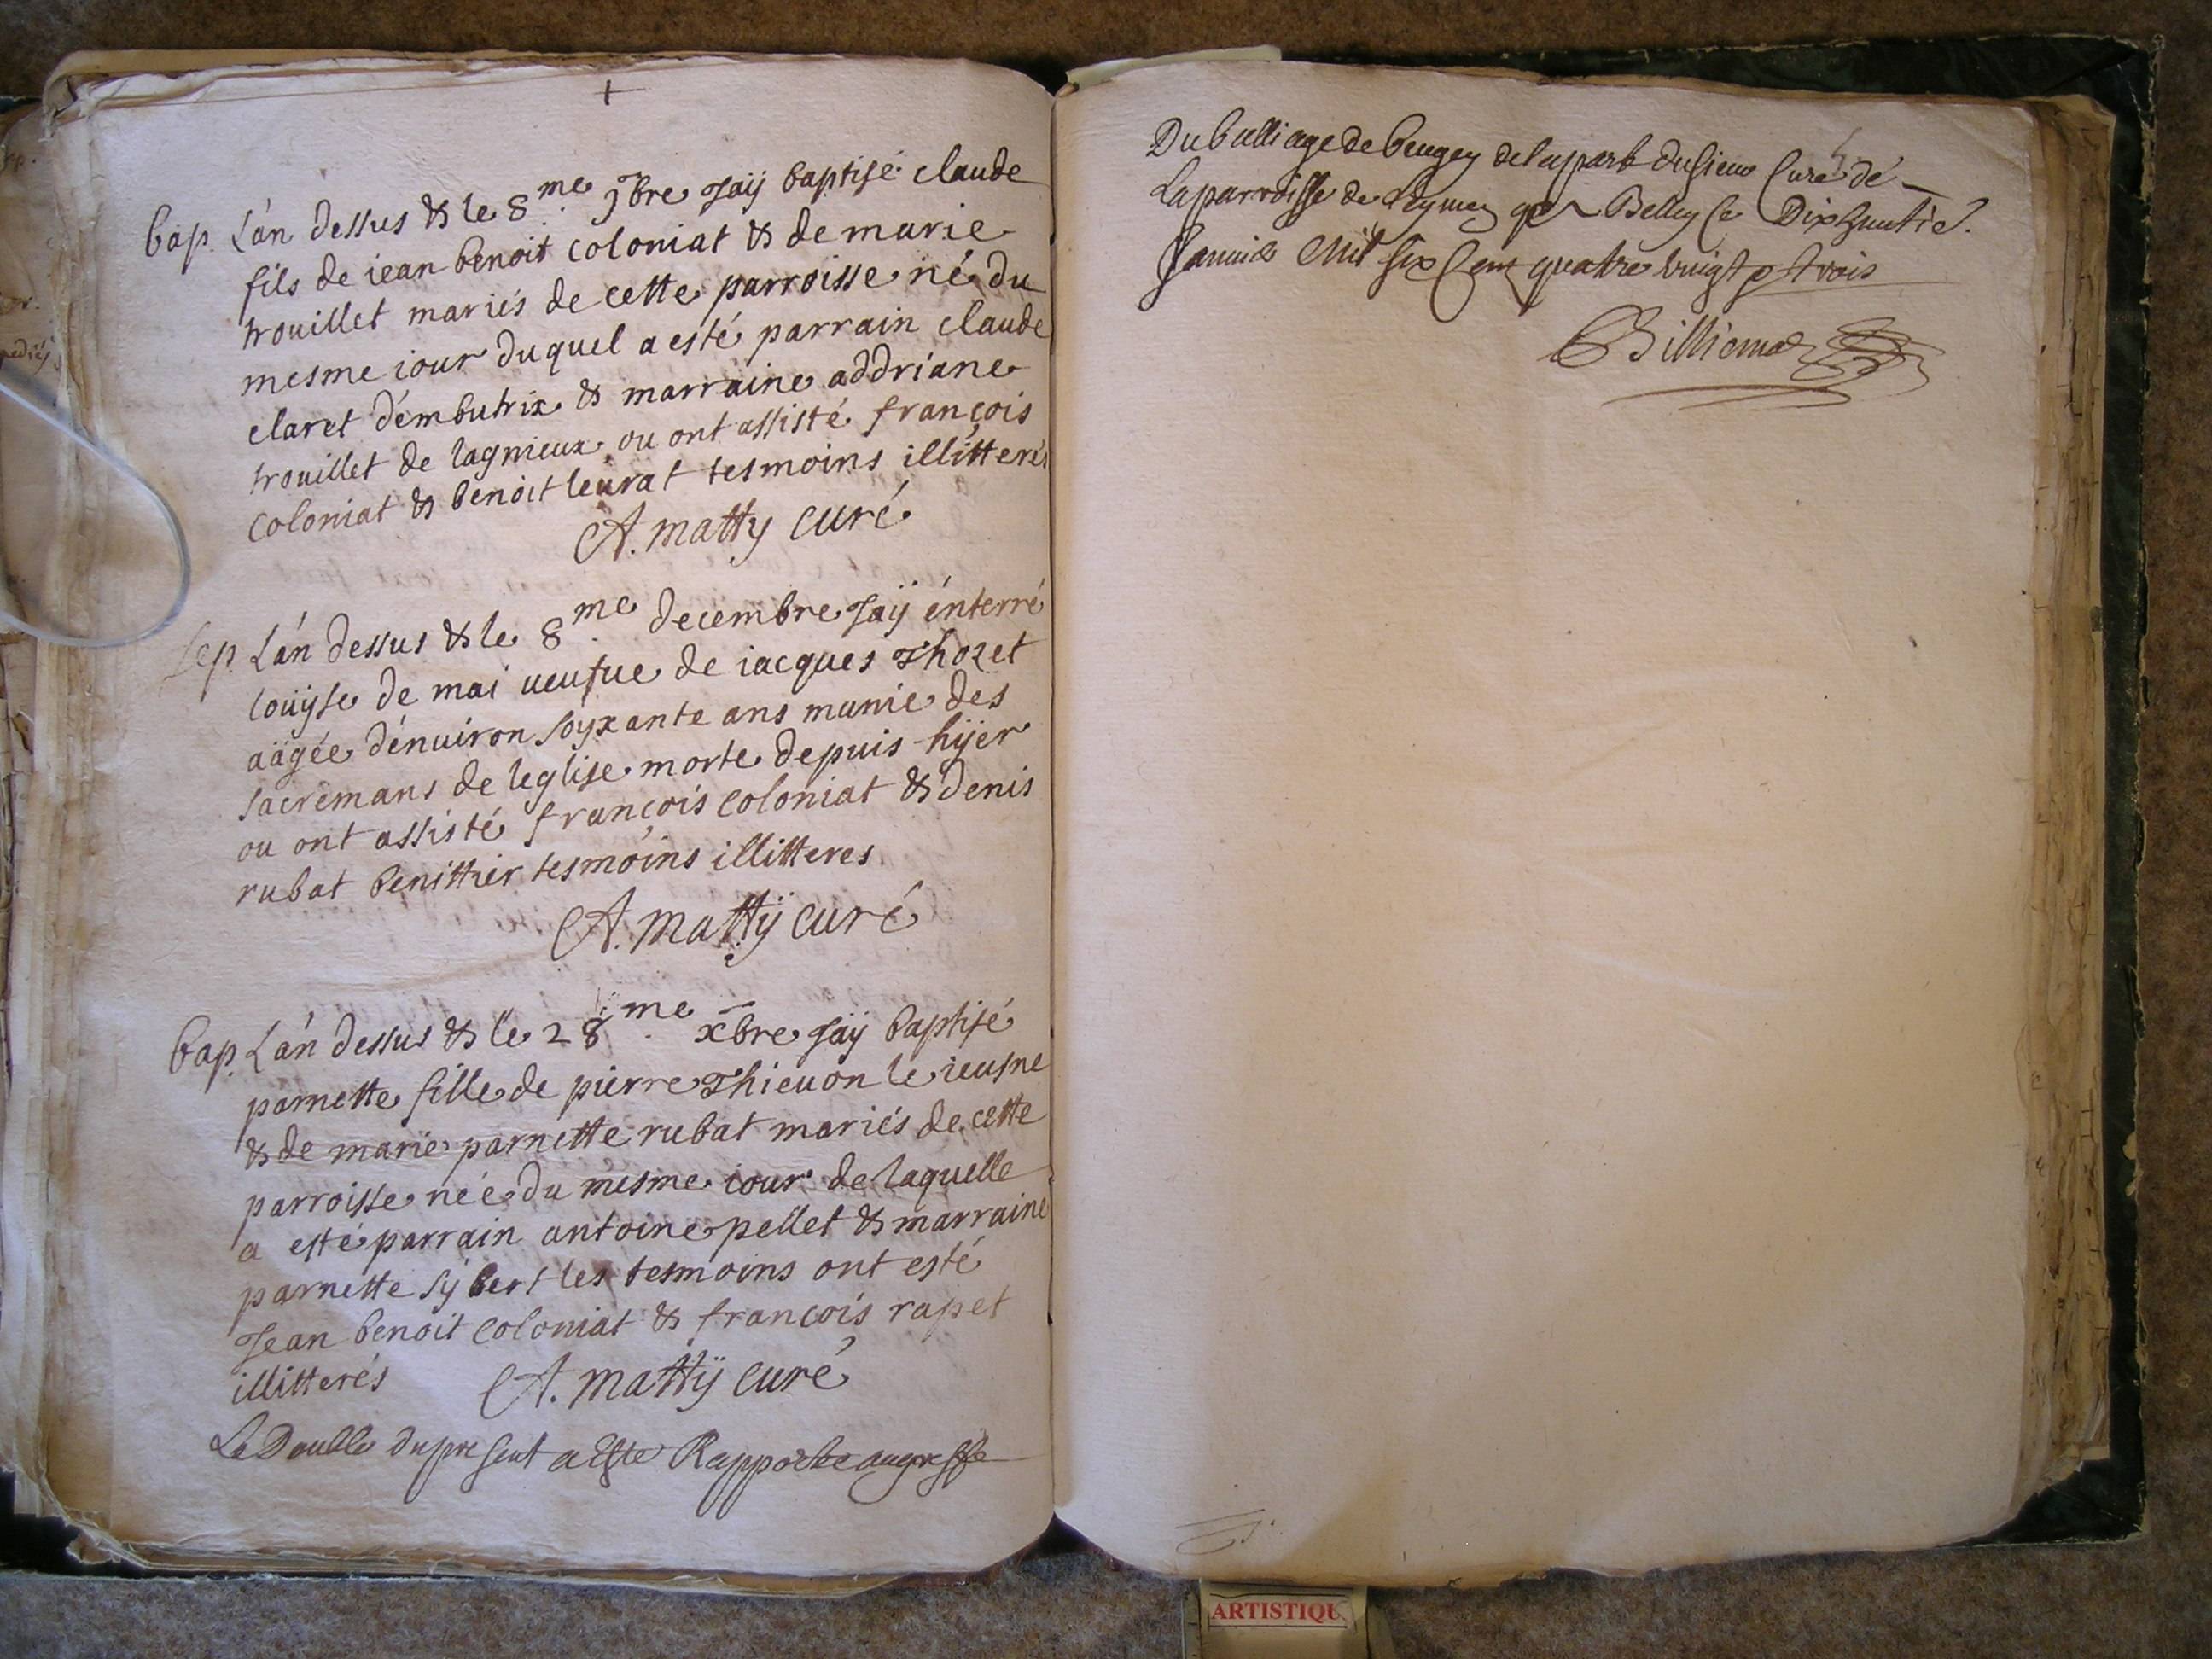 bap. L'an dessus & le 8.me 9bre Jaÿ baptisé claude
fils de iean benoit coloniat & de marie
trouillet mariés de cette parroisse né du
mesme iour duquel a esté parrain claude
claret d'embutrix & marraine addriane
trouillet de lagnieux, ou ont assisté françois
coloniat & benoit leurat tesmoins illitterés
A. matty curé
sep. L'an dessus & le 8.me decembre Jaÿ énterré
louyse de mai ueufue de iacques Thozet
aägée d'enuiron soyxante ans munie des
sacremans de leglise morte depuis hÿer
ou ont assisté françois coloniat & denis
rubat benittier tesmoins illitteres
A. mattÿ curé
bap. L'an dessus & le 28.me xbre Jaÿ baptisé
parnette fille de pierre Thieuon le ieusne
& de marie parnette rubat mariés de cette
parroisse née du mesme iour de laquelle
a esté parrain antoine pellet & marraine
parnette sÿbert les tesmoins ont esté
Jean benoit coloniat & françois rapet
illitterés A. mattÿ curé
Le Double du present a Este Rapporte au greffe
Du balliage de beugey de la part du sieur Curé de
La parroisse de Leymen Belley ce Dix huictie.
Januier Mil six Cent quatre vingt trois
Billiema
ARTISTIQU